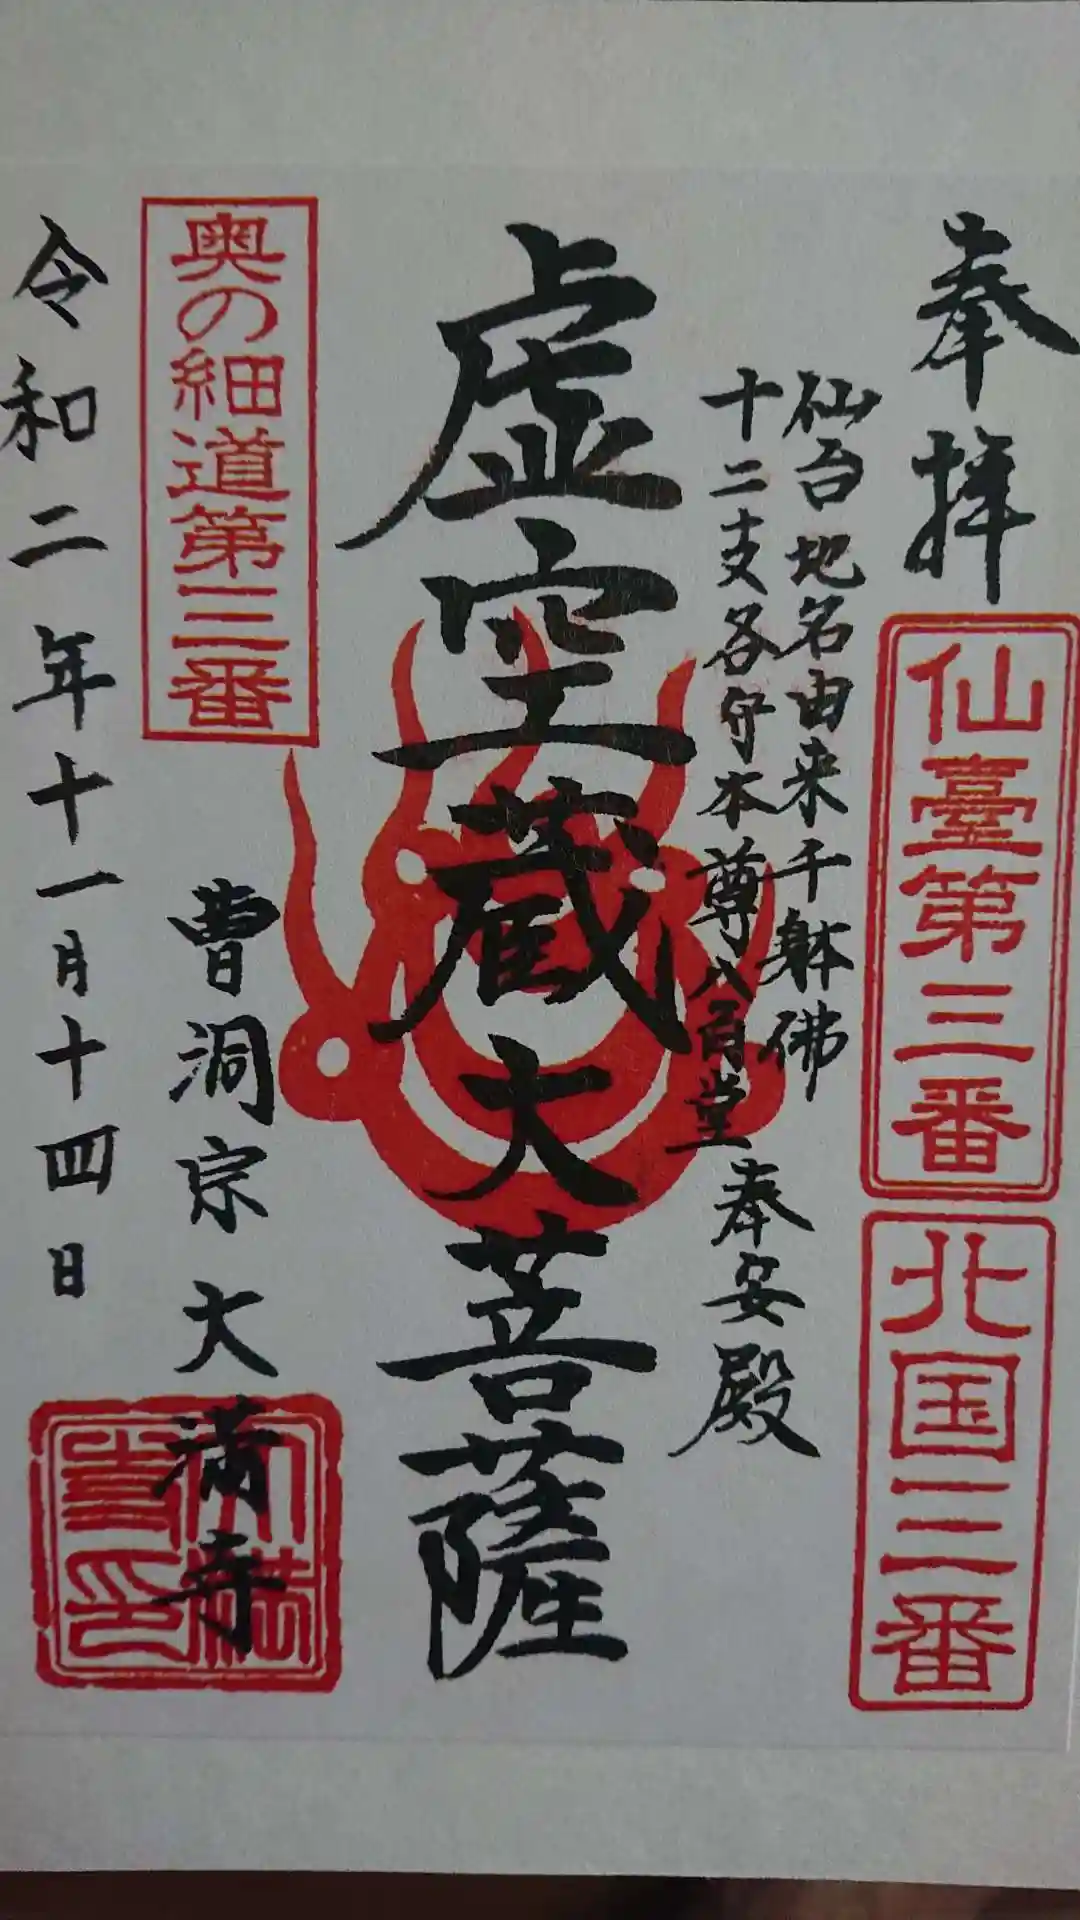 奉拝
仙臺第三番
北国三番
仙台地名由来千躰佛
十二支各守本尊八角堂奉安殿
虚空蔵大菩薩
奥の細道第三番
曹洞宗大満寺
令和二年十一月十四日